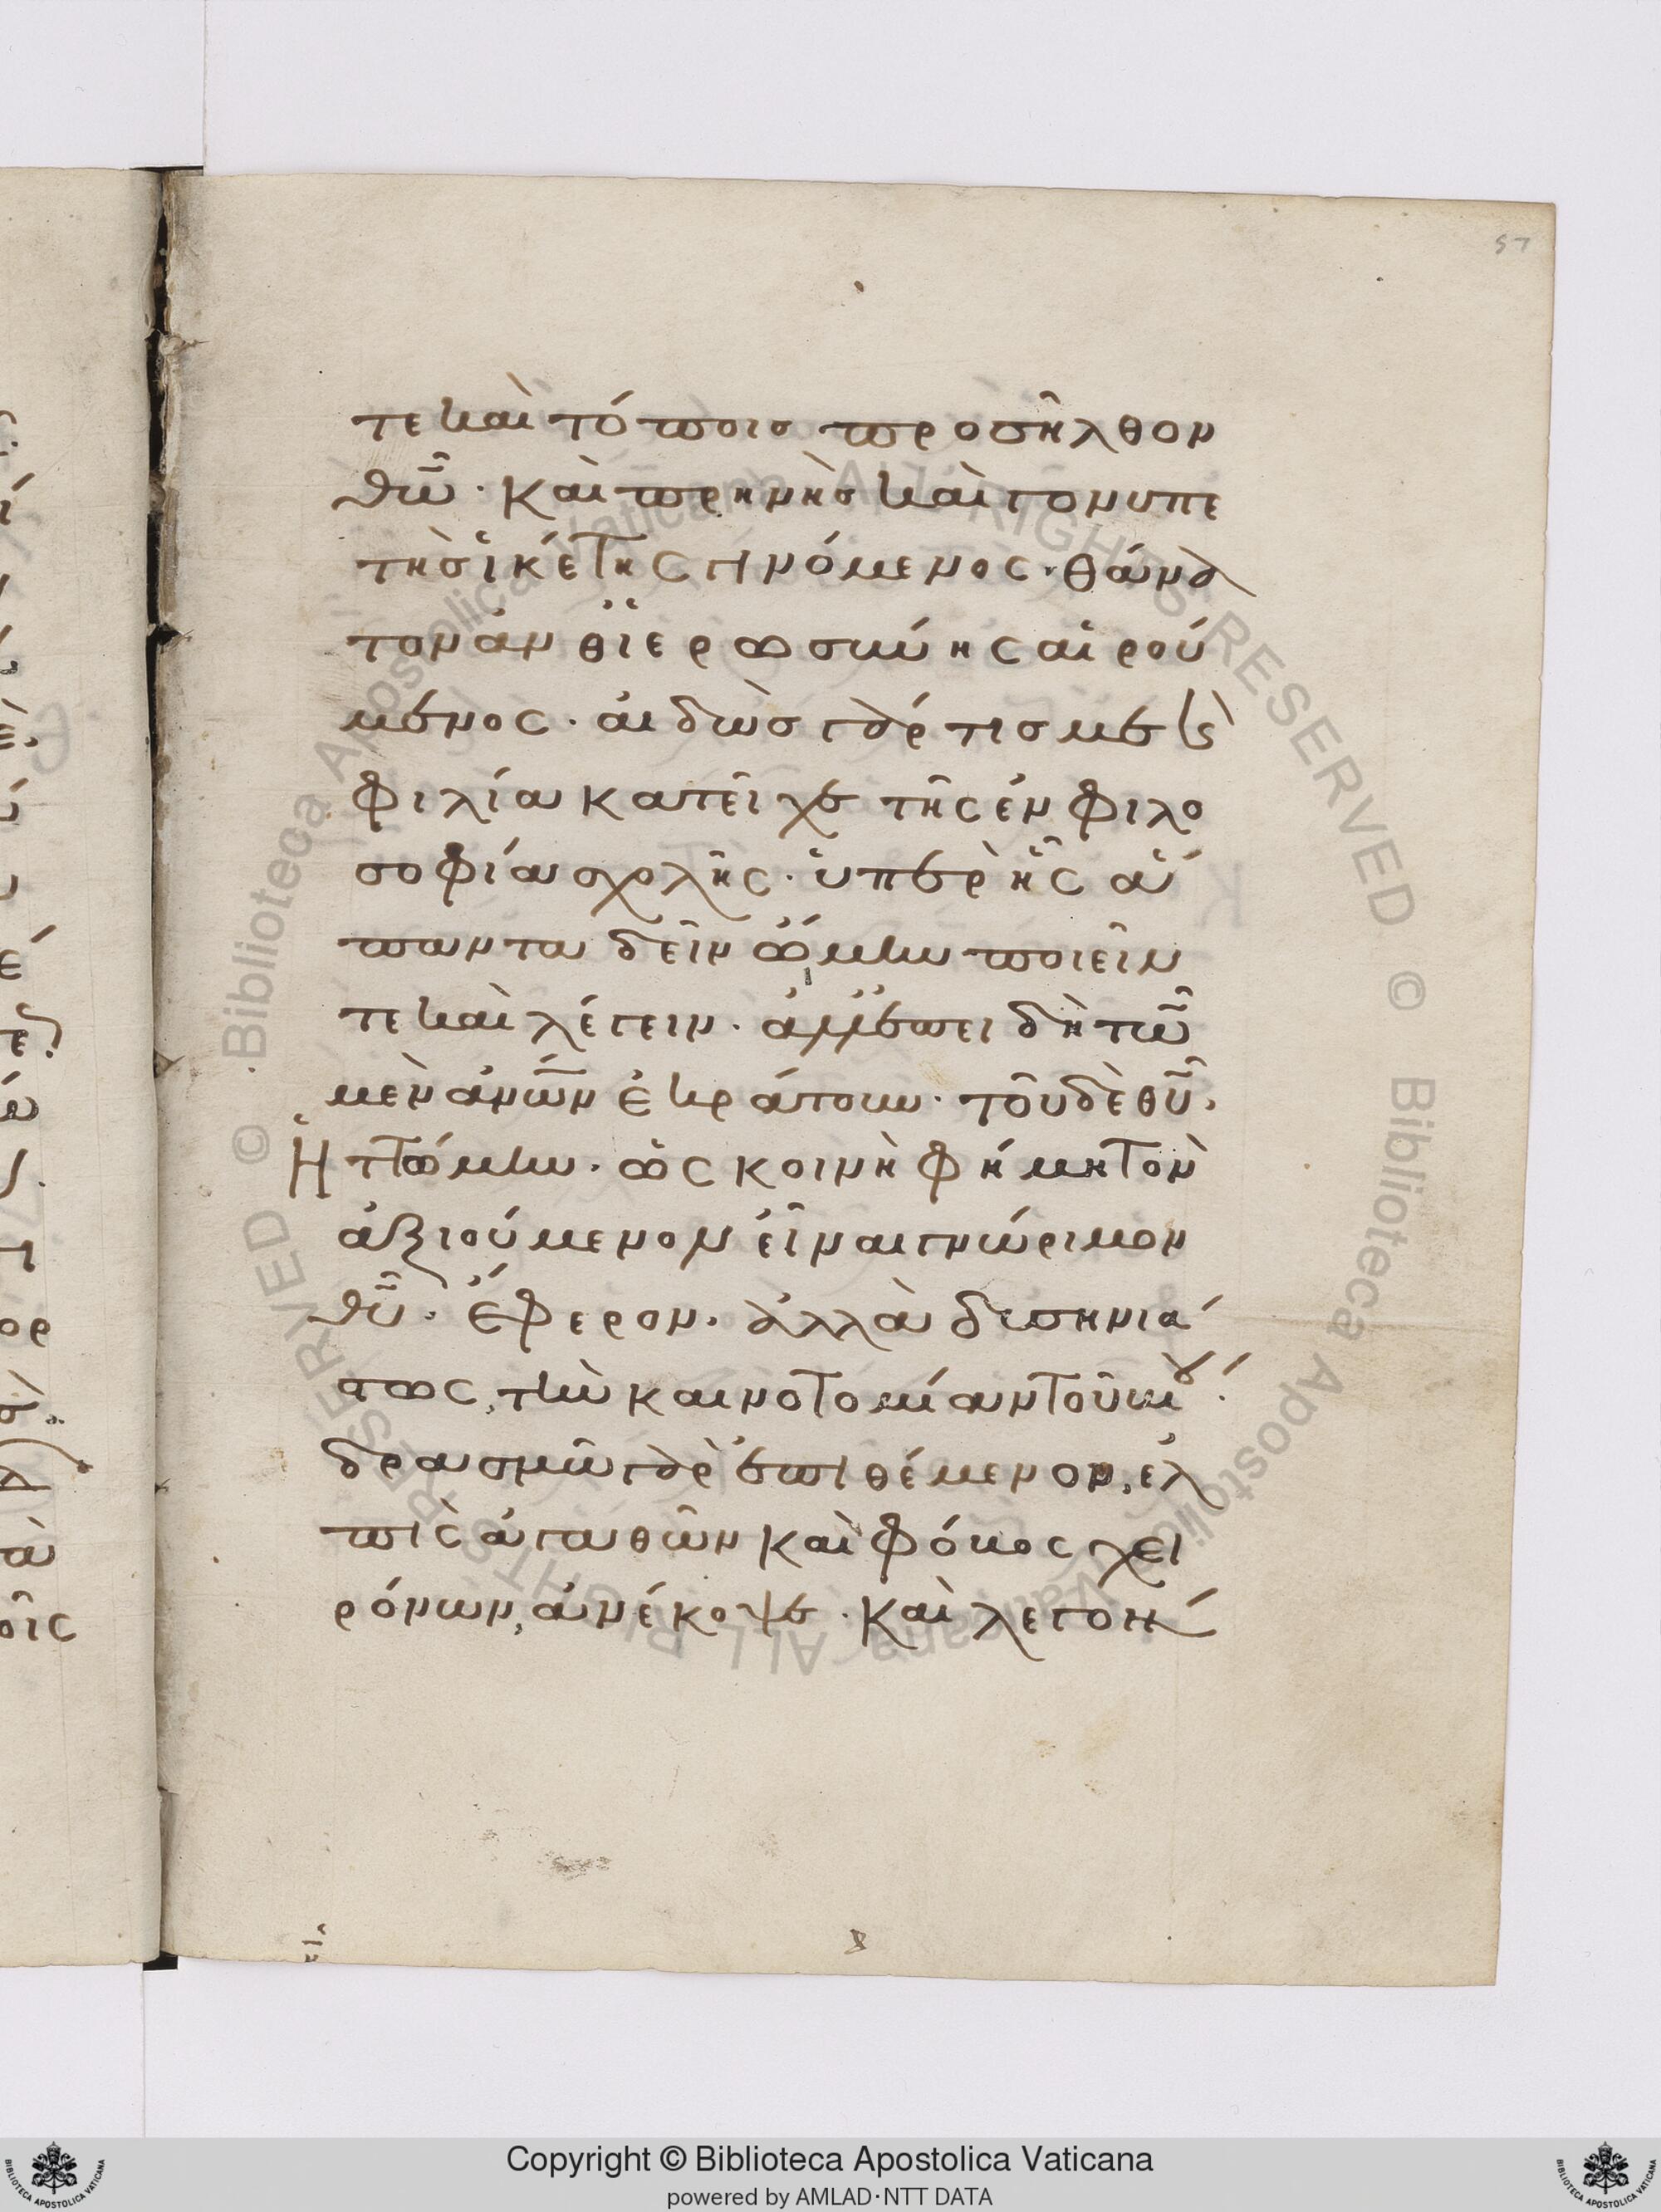 τε καὶ τόποις προσῆλθον
θῶ̅. Καὶ πρηνὴς καὶ γονυπε
τὴς ἱκέτης γινόμενος. θάνα
τον ἀνθ ἱερωσύνης αἱρού
μενος. αἰδὼς γάρ τις με καὶ
φιλία κατεῖχε τῆς ἐν φιλο
σοφία σχολῆς. ὑπὲρ ἧς ἅ
παντα δεῖν ᾤμην ποιεῖν
τε καὶ λέγειν. ἀλλ ἐπει δὴ τῶ̅
μὲν ἀν̅ων ἐκράτουν. τοῦ δὲ θυ̅.
Ἡττώμην. ὡς κοινὴ φήμη τὸν
ἀξιούμενον εἶναι γνώριμον
θυ̅. ἔφερον. ἀλλὰ δυσηνιά
στως, τὴν καινοτομίαν τοῦ βίου.
δρασμῶ γὰρ ἐπιθέμενον, ἐλ
πὶς ἀγαθῶν καὶ φόβος χει
ρόνων, ἀνέκοψε. Καὶ λεγον
57
Copyright © Biblioteca Apostolica Vaticana
powered by AMLAD·NTT DATA